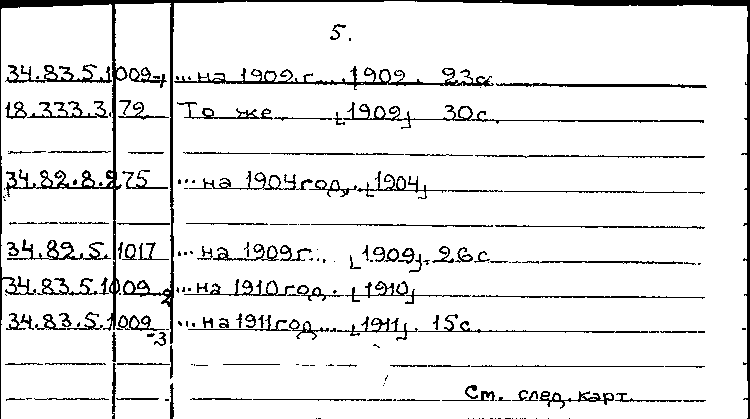 5.
34.83.5.1009-1 ...на 1902 г... 1902. 23с.
18.333.3.72 То же. [1902] 30с.
34.82.8.275 ...на 1904 год,.. [1904]
34.82.5.1017 ...на 1909 г.. [1909]. 26с
34.83.5.1009-2 ...на 1910 год. [1910]
34.83.5.1009-3 ...на 1911 год... [1911]. 15с.
См. след. карт.